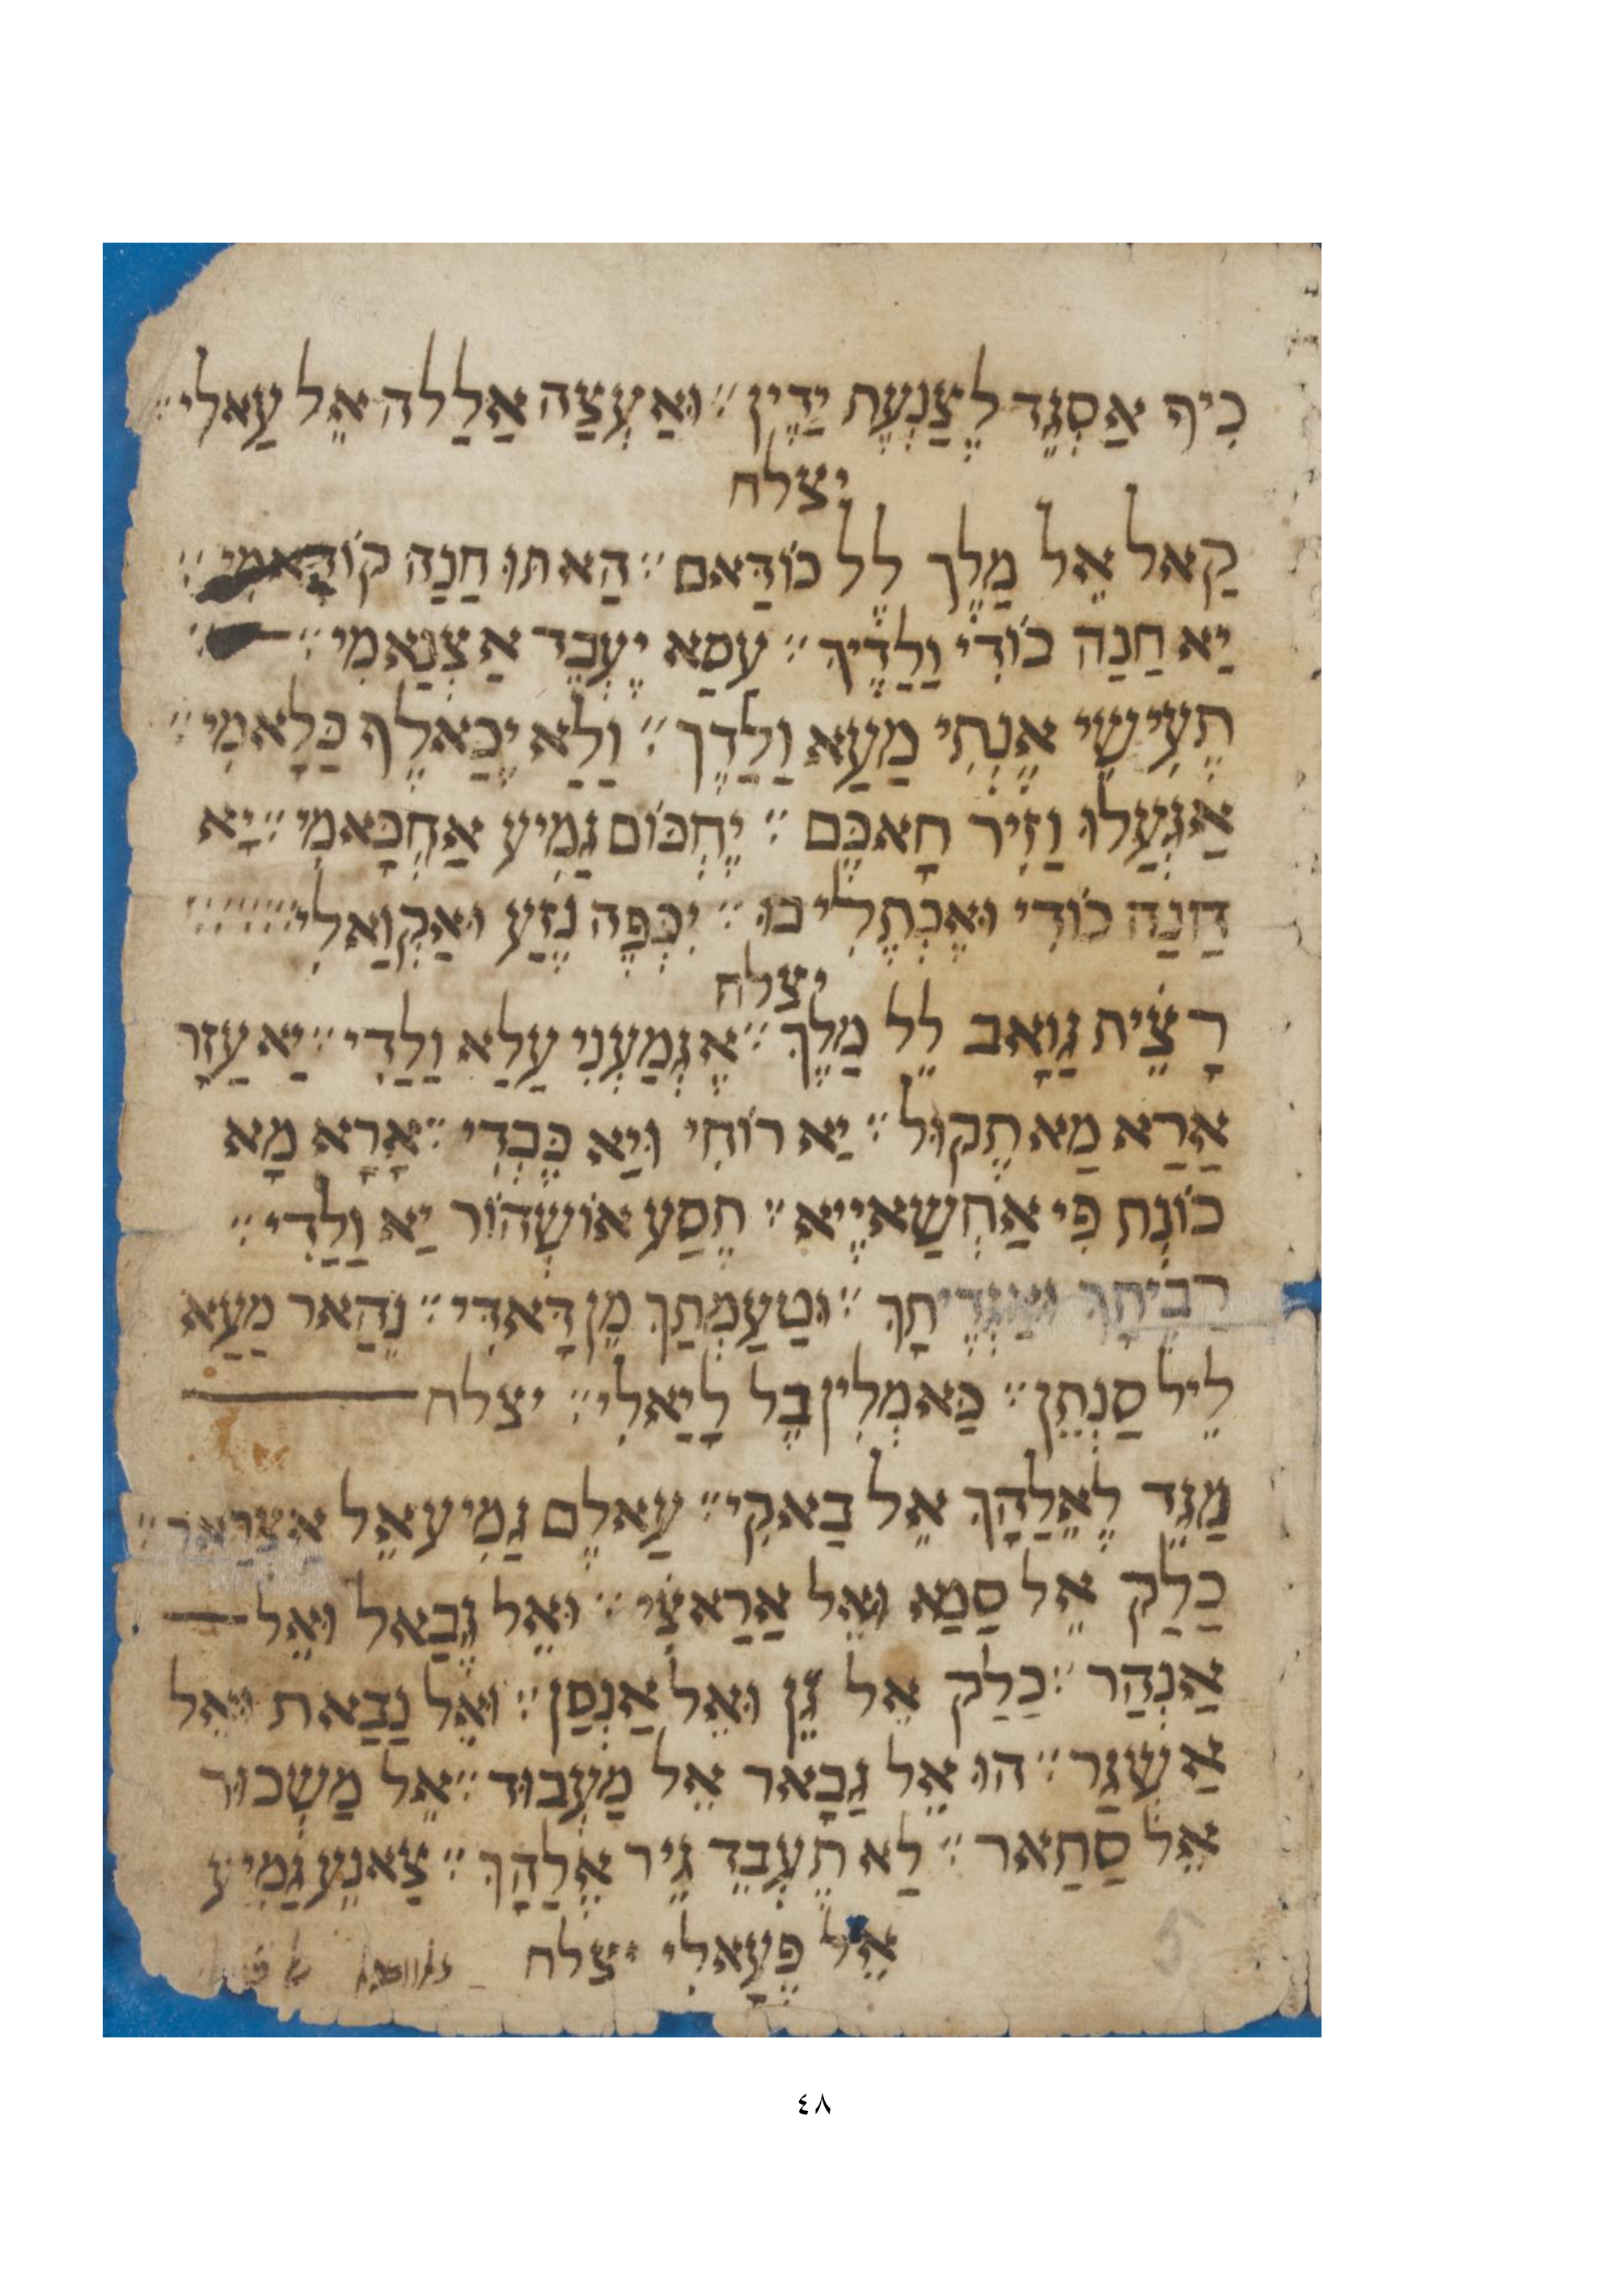 כִיף אַסְגֶד לְצַנְעֶת יַדֶיןִ ״ וּאַעְצַה אַללַה אֵל עַאלִי ״
יצלח
קַאל אֵל מַלֶך לֶל כוֹדַאם ״ הַאתוּ חַנַה קוֹדַאמִי ״
יַא חַנַה כוֹדִי וַלַדֶיךִ ״ עַסַא יֶעְבֶד אַצְנַאמִי ״
תֶעִישִי אֶנְתִי מַעַא וַלַדֶךְ ״ וַלַא יְכַאלֶף כַלָאמִי ״
אַגְעַלוּ וַזִיר חָאכֶּם ״ יֶחְכּוֹם גַמִיע אַחְכָּאמִי ״ יַא
חַנַה כוֹדִי וּאֶכְתֶלִי בוּ ״ יִכְּפֶה נֶזַע וּאַקְוַאלִי ״
יצלח
רָצֵית גַוָאב לֵל מַלֶךְ ״ אֶגְמַעְנִי עַלַא וַלַדִי ״ יַא עַזָר
אַרַא מַא תֶקוּל ״ יַא רוֹחִי וּיַא כֶּבְדִי ״ אָרָא מָא
כוֹנְת פִי אַחְשַאיֶיא ״ תֶסַע אוֹשְהוֹר יַא וַלַדִי ״
רַבֵיתַךְ וּ ״ וּטַעַמְתַךְ מֶן דָאדִי ״ נֶהַאר מַעַא
לֵיל סַנְתֵן ״ כַּאמְלִין בֶל לָיַאלִי ״ יצלח
מַגֵד לֶאֵלַהָךְ אֵל בַאקִי ״ עַאלֶם גַמִיע אֵל אַצְרַאר ״
כַלַק אֵל סַמַא וּאֵל אַרַאצִי ״ וּאֵל גֶבַאל וּאֵל
אַנְהַר ״ כַלַק אֵל גֵן וּאֵל אַנְסַן ״ וּאֵל נַבַאת וּאֵל
אַשְגַר ״ הוּ אֵל גַבָאר אֵל מַעְבוּד ״ אֵל מַשְכוּר
אֵל סַתַאר ״ לַא תֶעְבֵד גֵיר אֶלַהָךְ ״ צַאנֵע גַמִיע
אֵל פֶעָאלִי יצלח
٤٨